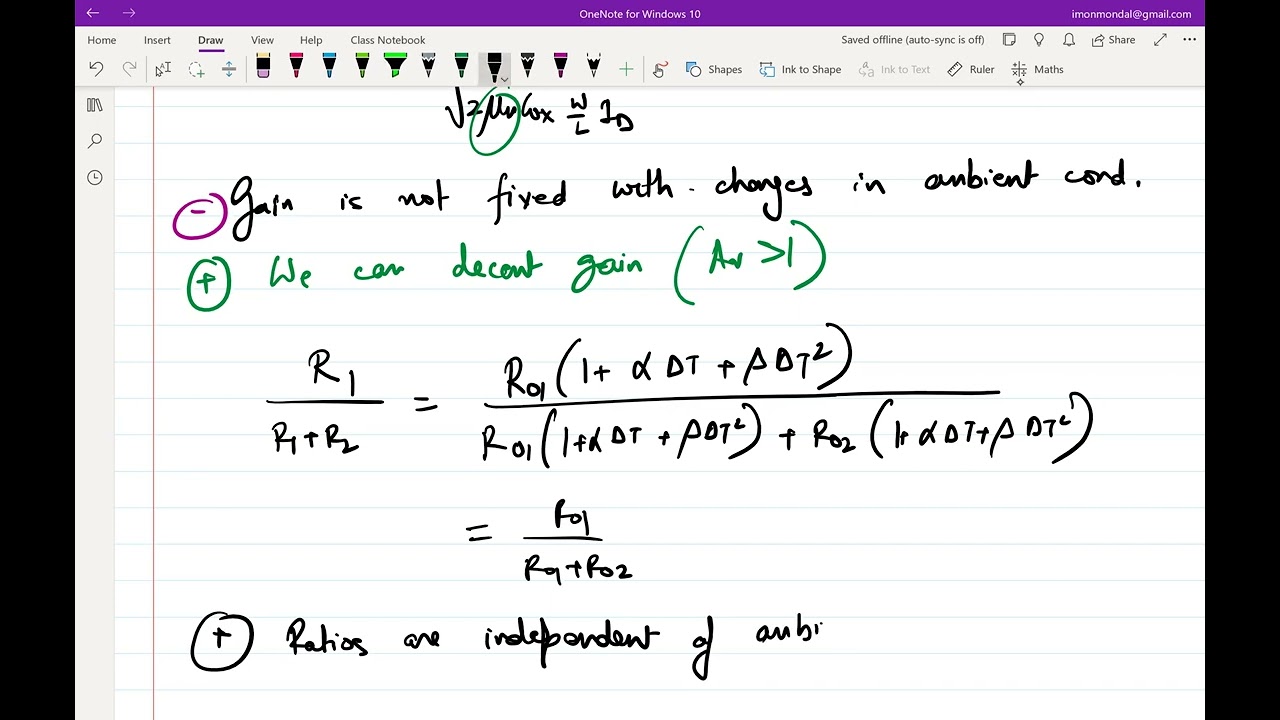 OneNote for Windows 10
imonmondal@gmail.com
Home Insert Draw View Help Class Notebook
Saved offline (auto-sync is off) Share
Shapes Ink to Shape Ink to Text Ruler Maths
√2μnCox W/L ID
- Gain is not fixed with changes in ambient cond.
+ We can decent gain (Av >1)
R1/(R1+R2) = R01(1+ α ΔT + β ΔT²) / (R01(1+α ΔT + βΔT²) + R02(1+ αΔT+β ΔT²))
= R01/(R01+R02)
+ Ratios are independent of ambi